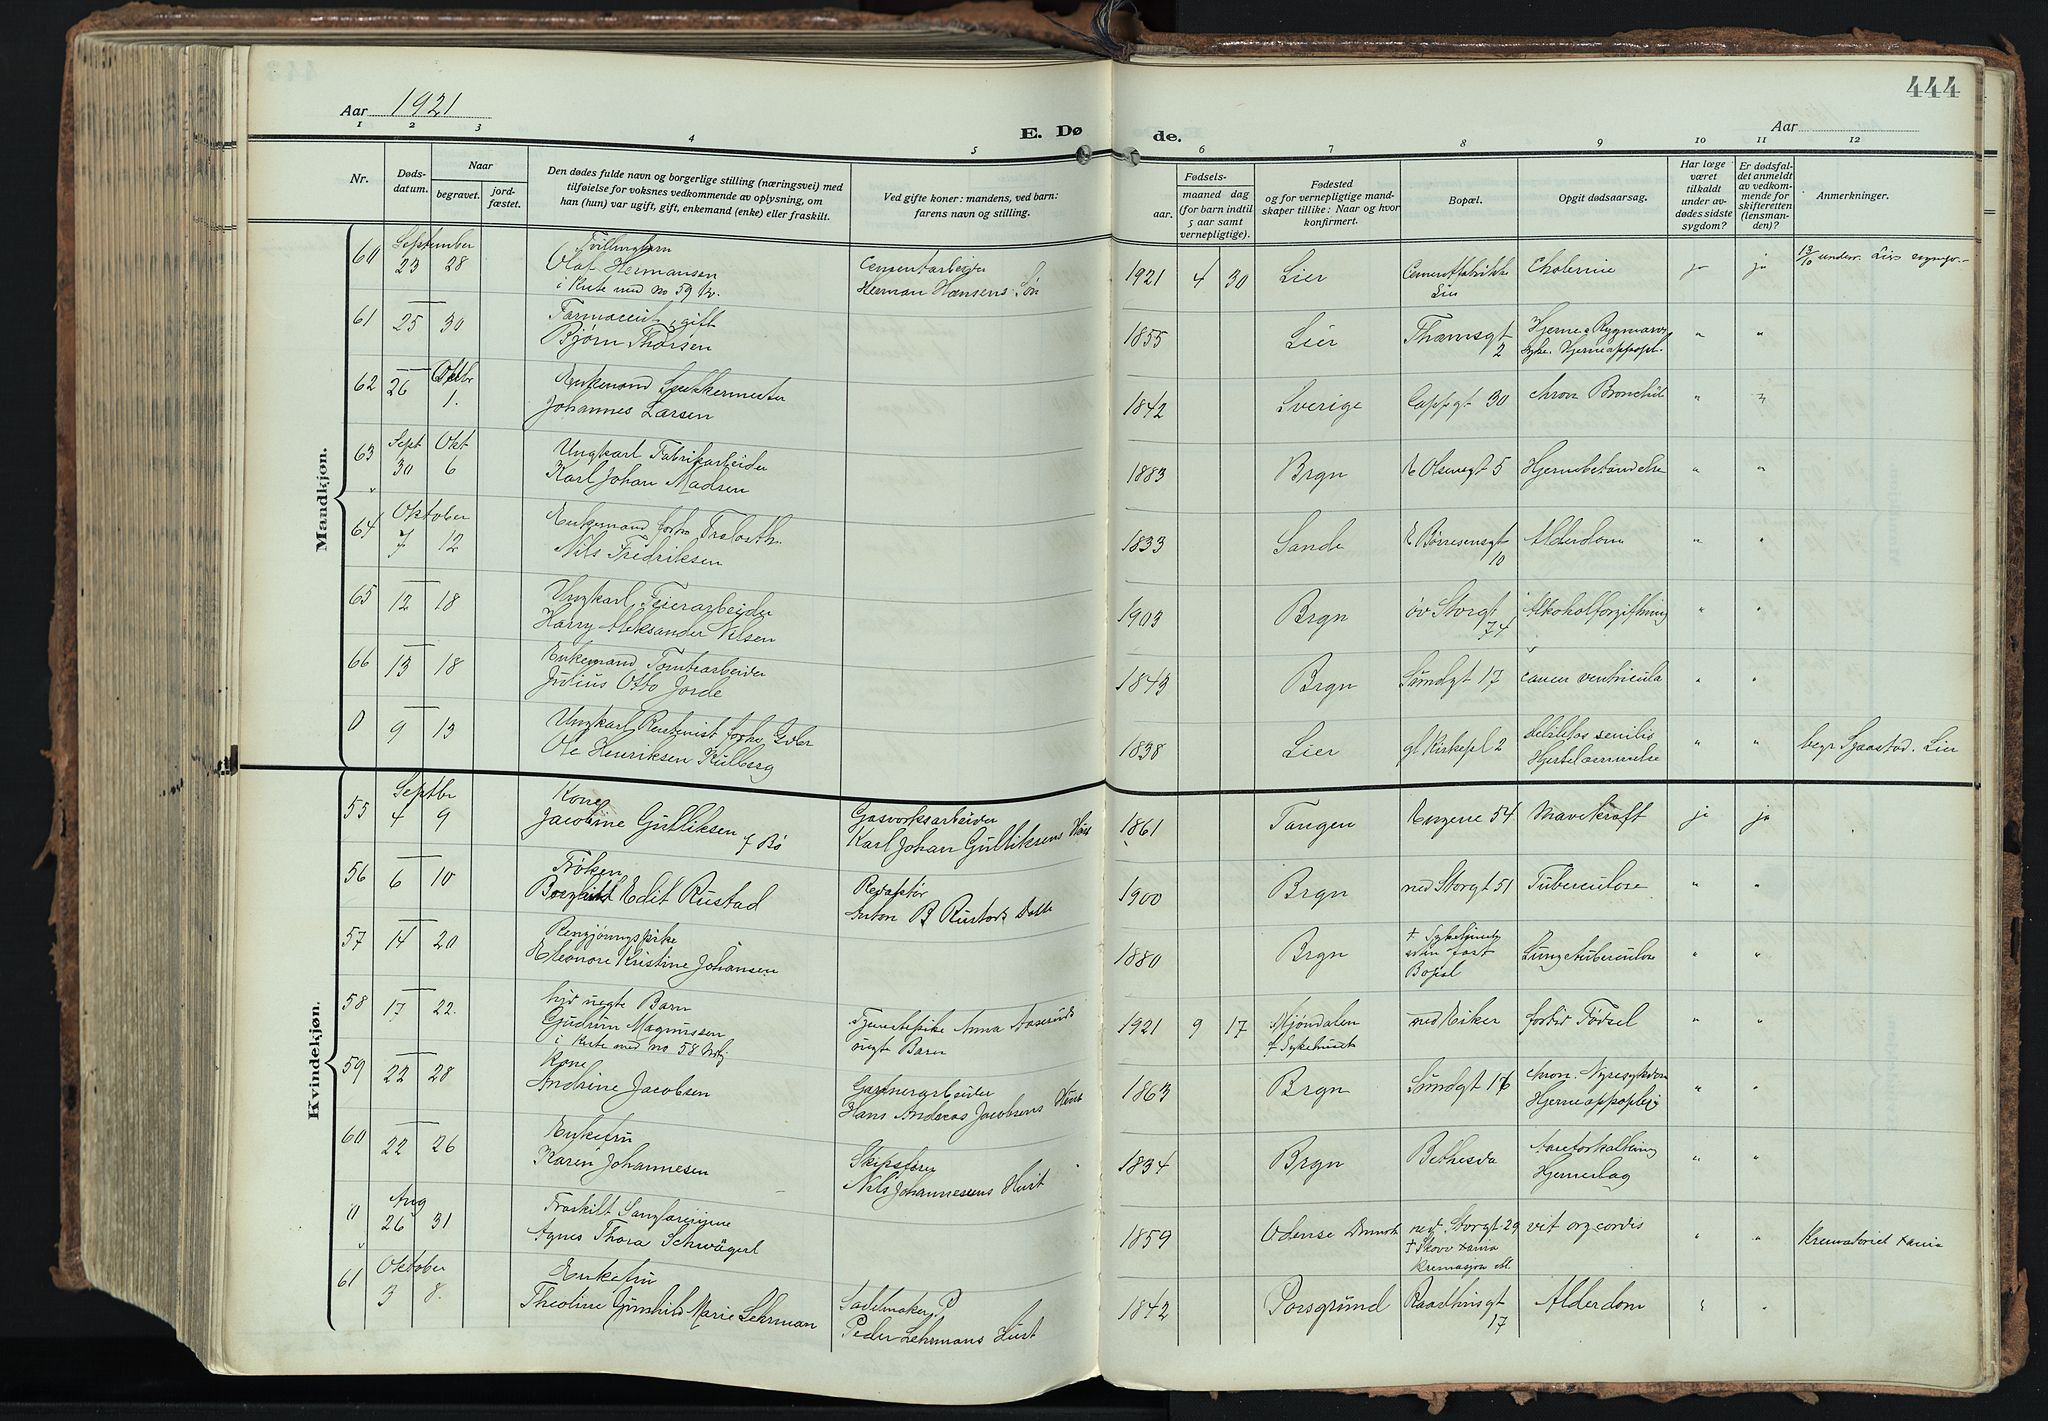 444
Aar 1921
E. Dø de.
Aar
1 2 3 4 5 6 7 8 9 10 11 12
Nr.
Døds-
datum.
Naar
begravet.
jord-
fæstet.
Den dødes fulde navn og borgerlige stilling (næringsvei) med
tilføielse for voksnes vedkommende av oplysning, om
han (hun) var ugift, gift, enkemand (enke) eller fraskilt.
Ved gifte koner: mandens, ved barn:
farens navn og stilling.
Fødsels-
aar.
maaned dag
(for barn indtil
5 aar samt
vernepligtige).
Fødested
og for vernepligtige mand-
skaper tillike: Naar og hvor
konfirmert.
Bopæl.
Opgit dødsaarsag.
Har læge
været
tilkaldt
under av-
dødes sidste
sygdom?
Er dødsfal-
det anmeldt
av vedkom-
mende for
skifteretten
(lensman-
den)?
Anmerkninger.
Mandkjøn.
September
60 23 28 Tvillingbarn
Olaf Hermansen
i Kiste med no 59
Cementarbeider
Herman Hansens Søn
1921 4 30 Lier Cementfabrikke
Lier
Cholerine ja ja 13/10 underr. Liers
61 25 30 Farmaceut, gift
Bjørn Thorsen
1855 Lier Thamsgt
2
Hjerne & Rygmarv
syke. Hjerneappopl. " "
62 26 Oktbr
1. Enkemand Snekkermester
Johannes Larsen
1842 Sverige Cappgt 30 chron Bronchit " "
63 Sept
30 Okt
6 Ungkarl Fabrikarbeider
Karl Johan Madsen
1883 Brgn E Olsensgt 5 Hjernebetændelse " "
Oktober
64 7 12 Enkemand forhv
Nils Fredriksen
1833 Sande E Børresensgt
10
Alderdom " "
65 12 18 Ungkarl Feierarbeider
Harry Aleksander Nilsen
1903 Brgn øv Storgt
74
Alkoholforgiftning " "
66 13 18 Enkemand Tomtearbeider
Julius Otto Jorde
1843 Brgn Sundgt 17 cancer ventricula " "
0 9 13 Ungkarl Rentenist forhv
Ole Henriksen Kulberg
1838 Lier gl Kirkepl 2 debilitas senilis
Hjertelammelse " " begr Sjaastad. Lier
Kvindekjøn.
Septbr
55 4 9 Kone
Jacobine Gulliksen
f Bø
Gasverksarbeider
Karl Johan Gulliksens Hust
1861 Tangen Engene 54 Mavekræft ja ja
56 6 10 Frøken
Borghild Edit Rustad
Redaktør
Anton B Rustads Datt
1900 Brgn ned Storgt 51 Tuberculose " "
57 14 20 Rengjøringspike
Eleonore Kristine Johansen
1880 Brgn † Sykehuset
uten fast
Bopæl
Lungetuberculose " "
58 17 22. hjd uegte Barn
Gudrun Magnussen
i Kiste med no 58
Tjenestepike Anna Aaserud
uegte Barn
1921 9 17 Mjøndalen
† Sykehuset
ned Eiker fortid Fødsel " "
59 22 28 Kone
Andrine Jacobsen
Gartnerarbeider
Hans Andreas Jacobsens Hust
1863 Brgn Sundgt 16 chron. Nyresykdom
Hjerneappoplexi " "
60 22 26 Enkefru
Karen Johannesen
Skipsfører
Nils Johannesens Hust
1834 Brgn Bethesda Aareforkalkning
Hjerneslag " "
0 Aug
26 31 Fraskilt Sanglærerinne
Agnes Thora Schwägerl
1859 Odense Danmark ned Storgt 29
† Skovv Kania
Kremasjon
vit org cordis " " Krematoriet Xania
Oktober
61 3 8. Enkefru
Theoline Gunhild Marie Lehrman
Sadelmaker P
Peder Lehrmans Hust
1842 Porsgrund Raadhusgt
17
Alderdom " "